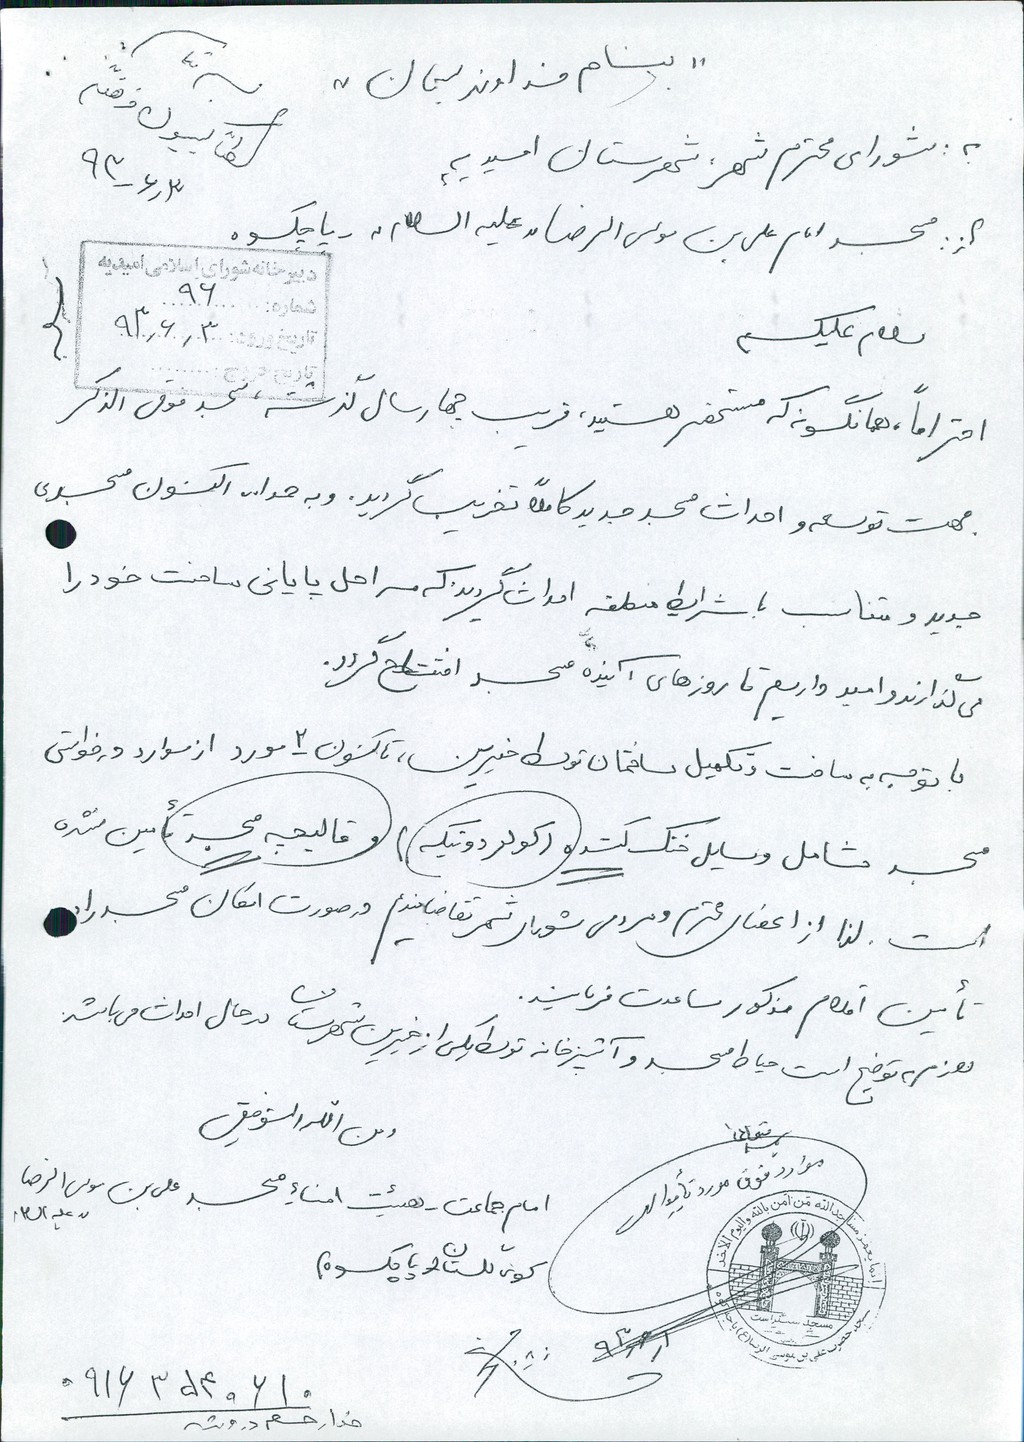 "بسنام خداوند سبحان"
به: شورای محترم شهر، شهرستان امیدیه
از: مسجد امام علی بن موسی الرضا «علیه السلام» - پاچکوه
کمیسیون
۹۳-۶،۳
دبیرخانه شورای اسلامی امیدیه
شماره: ۹۶
تاریخ ورود: ۹۳،۶،۳
تاریخ خروج:
سلام علیکم
احتراماً، همانگونه که مستحضر هستید، قریب چهار سال گذشته، مسجد فوق الذکر
جهت توسعه و احداث مسجد جدید کاملاً تخریب گردید. و به حمدا... اکنون مسجدی
جدید و متناسب با شرایط منطقه احداث گردید که مراحل پایانی ساخت خود را
می‌گذارند و امید واریم تا روزهای آینده مسجد افتتاح گردد.
با توجه به ساخت و تکمیل ساختمان توسط خیرین، تاکنون ۲ مورد از موارد درخواستی
مسجد شامل وسایل خنک کننده (کولر دو تیکه) و قالیچه مسجد تأمین نشده
است. لذا از اعضای محترم و مردمی شورای شهر تقاضامندیم در صورت امکان مسجد را در
تأمین اقلام مذکور مساعدت فرمایند.
لازم به توضیح است حیاط مسجد و آشپزخانه توسط یکی از خیرین شهرستان در حال احداث می‌باشد.
ومن الله التوفیق
امام جماعت - هیئت امناء مسجد علی بن موسی الرضا
«علیه السلام»
کوی گلستان (پاچکوه)
بسمه تعالی
موارد فوق مورد تأیید است
انما یعمر مساجد الله من آمن بالله والیوم الآخر
مسجد سنگر است
مسجد حضرت علی بن موسی الرضا (ع) پاچکوه
۰۹۱۶۳۵۴۰۶۱۰